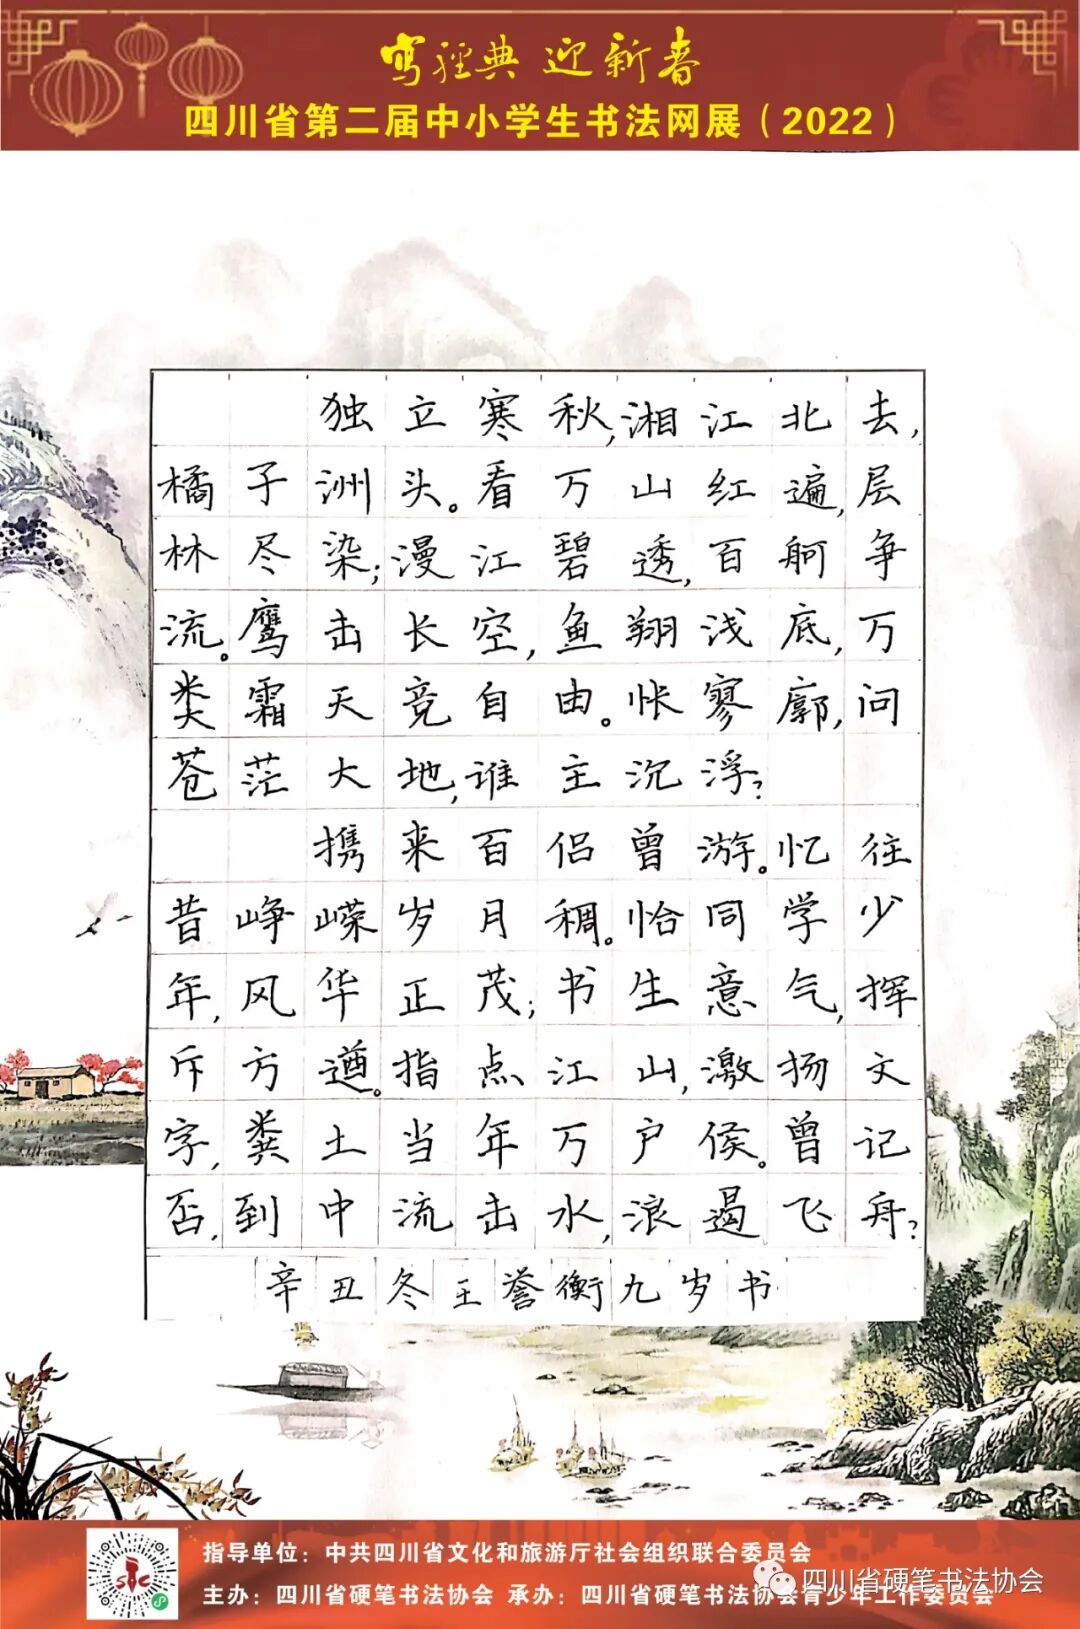 写经典 迎新春
四川省第二届中小学生书法网展（2022）
独立寒秋,湘江北去,
橘子洲头。看万山红遍,层
林尽染;漫江碧透,百舸争
流。鹰击长空,鱼翔浅底,万
类霜天竞自由。怅寥廓,问
苍茫大地,谁主沉浮?
携来百侣曾游。忆往
昔峥嵘岁月稠。恰同学少
年,风华正茂;书生意气,挥
斥方遒。指点江山,激扬文
字,粪土当年万户侯。曾记
否,到中流击水,浪遏飞舟?
辛丑冬王誉衡九岁书
指导单位：中共四川省文化和旅游厅社会组织联合委员会
主办：四川省硬笔书法协会 承办：四川省硬笔书法协会青少年工作委员会
四川省硬笔书法协会